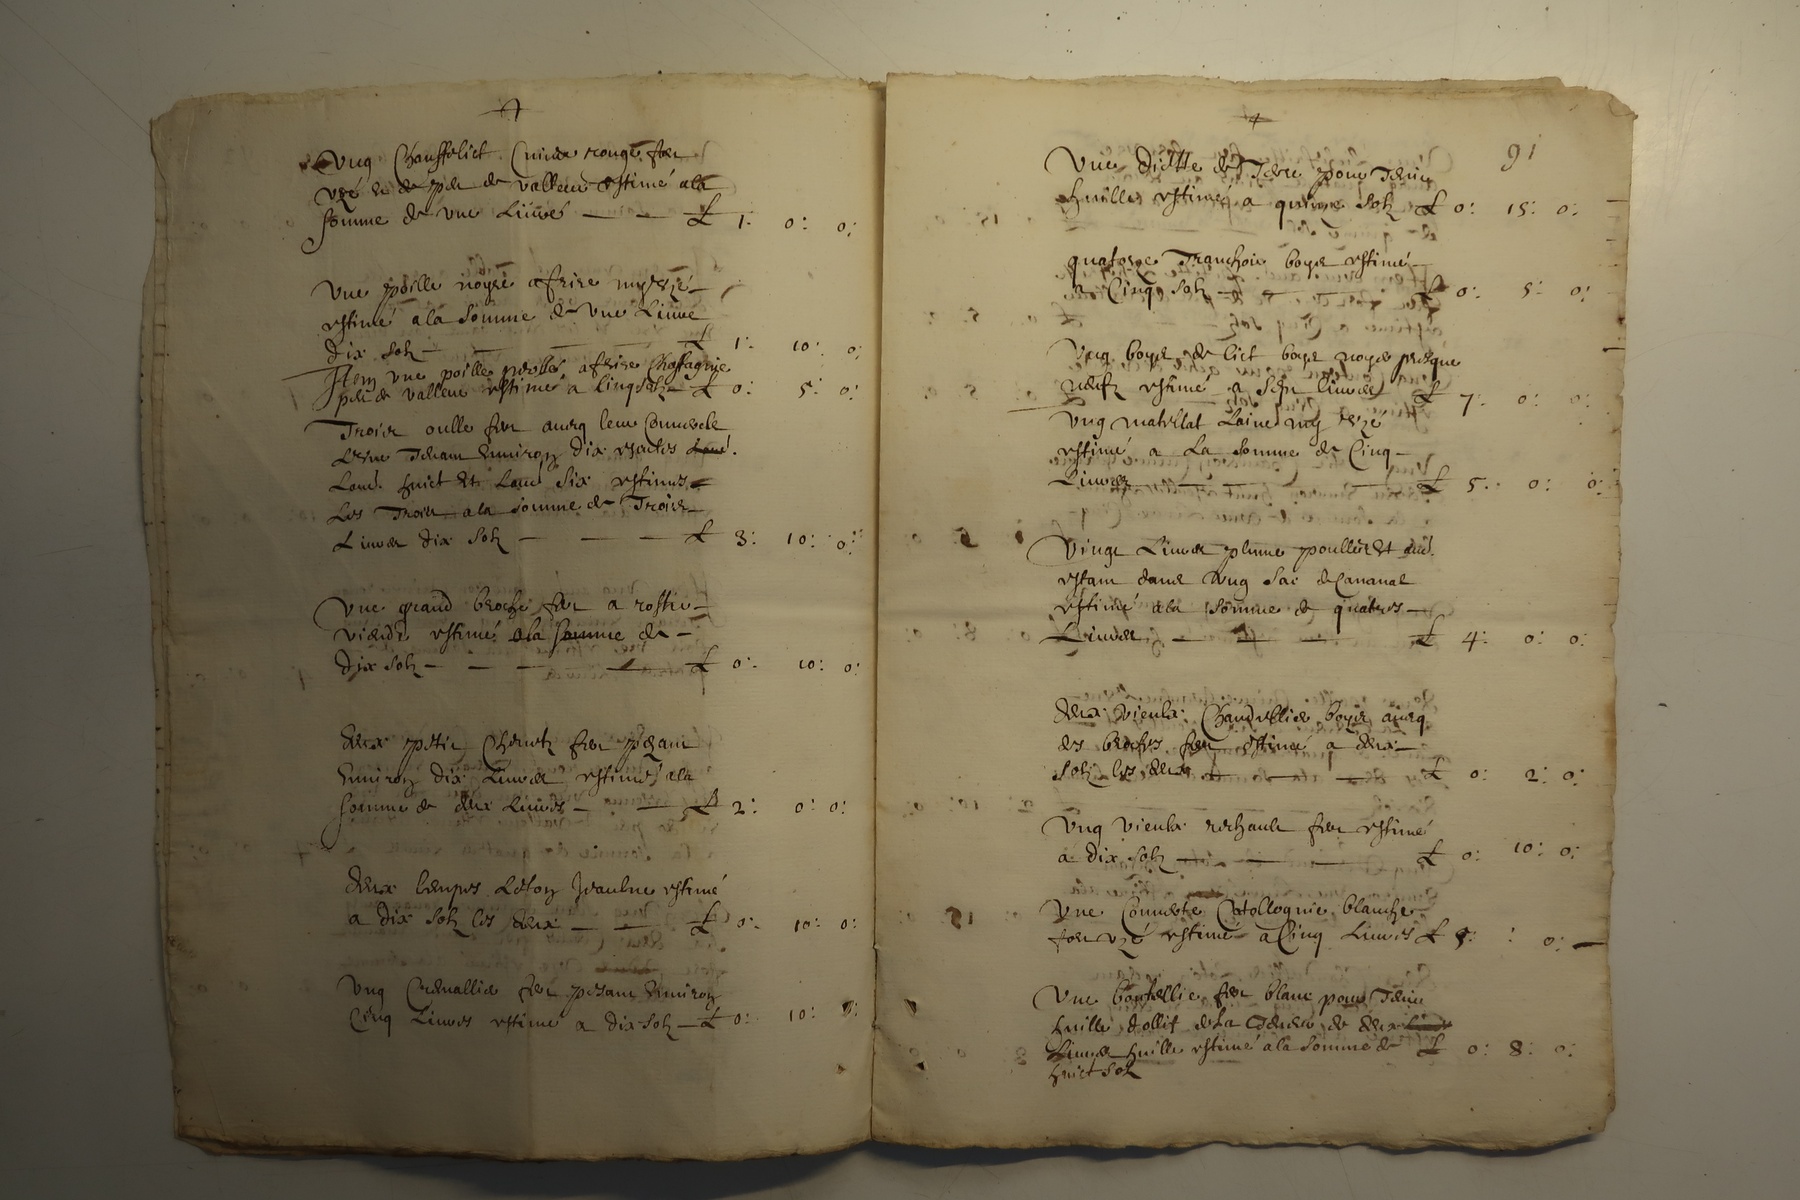 Ung Chauffelict Cuivre rouge fort
uzé et de peu de valleur estimé ala
somme de une Livre — — £ 1: 0: 0:
Une poille noyre a frire my uzé
estimé ala Somme de une Livre
dix solz — — — £ 1: 10: 0:
Item une poille persée a frire Chastagnie
peu de valleur estimé a Cinq solz — £ 0: 5: 0:
Trois oulle fer aveq leur Couvercle
L'une Tenant Environ dix escueles
Laud. huict et Laud. Six estimés
Les Trois ala somme de Trois
Livres dix solz — — — £ 3: 10: 0:
Une grand broche fer a rostir
viande estimé ala somme de
dix solz — — — — £ 0: 10: 0:
deux petis Chenetz fer pesant
Environ dix Livres estimés ala
somme de deux Livres — — £ 2: 0: 0:
deux lampes Léton Jeaulne estimé
a dix solz les deux — — £ 0: 10: 0:
Ung Cremallie fer pesant Environ
Cinq Livres estimé a dix solz — £ 0: 10: 0:
91
Une dictte de Terre pour Tenir
huille estimé a quinze solz £ 0: 15: 0:
quatorze Tranchoir boys estimé
a Cinq solz — — £ 0: 5: 0:
Ung boys de lict boys noyer presque
neuf estimé a Sept livres £ 7: 0: 0:
Ung matellat Laine my uzé
estimé a La Somme de Cinq
Livres — — — £ 5: 0: 0:
Vingt Livres plume poulles et aud.
estant dans Ung Sac de Cananat
estimé ala Somme de quatres
Livres — — — £ 4: 0: 0:
deux vieulx Chandellier boys aveq
des broches fer estimé a deux
solz les deux — — — £ 0: 2: 0:
Ung vieulx rechault fer estimé
a dix solz — — — £ 0: 10: 0:
Une Couverte Catallognie blanche
fort uzé estimé a Cinq Livres £ 5: : 0:
Une boutellie fer blanc pour Tenir
huille dollif de La Tenue de deux
Livres huille estimé ala Somme de £ 0: 8: 0:
huict Solz